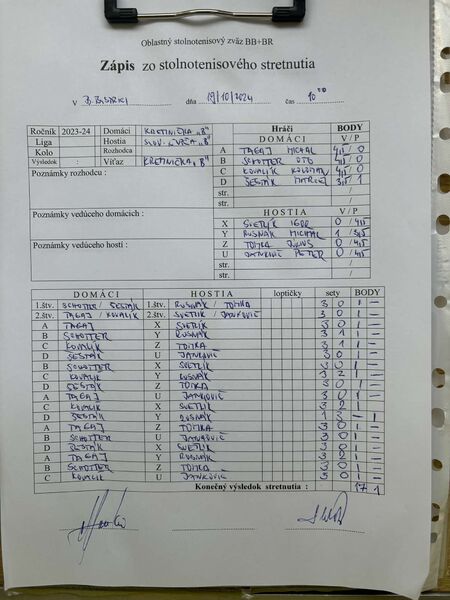 Oblastný stolnotenisový zväz BB+BR
Zápis zo stolnotenisového stretnutia
v B. BYSTRICI dňa 19/10/2024 čas 10⁰⁰
Ročník 2023-24 Domáci KREMNIČKA „B" Hráči BODY
Liga Hostia SLOV. ĽUPČA „B" DOMÁCI V/P
Kolo Rozhodca A TAGAJ MICHAL 4,5/0
Výsledok : Víťaz KREMNIČKA „B" B SCHOTTER OTO 4,5/0
Poznámky rozhodcu : C KOVALÍK KOLOMAN 4,5/0
D ŠESTÁK 3,5/1
str. /
str. /
Poznámky vedúceho domácich : HOSTIA V/P
X SVETLÍK IGOR 0/4,5
Y RUSNÁK MICHAL 1/3,5
Poznámky vedúceho hostí : Z TOMKA JÚLIUS 0/4,5
U JANKOVIČ PETER 0/4,5
str. /
str. /
DOMÁCI HOSTIA loptičky sety BODY
1.štv. SCHOTTER / ŠESTÁK 1.štv. RUSNÁK / TOMKA 3 0 1 –
2.štv. TAGAJ / KOVALÍK 2.štv. SVETLÍK / JANKOVIČ 3 0 1 –
A TAGAJ X SVETLÍK 3 0 1 –
B SCHOTTER Y RUSNÁK 3 1 1 –
C KOVALÍK Z TOMKA 3 1 1 –
D ŠESTÁK U JANKOVIČ 3 0 1 –
B SCHOTTER X SVETLÍK 3 0 1 –
C KOVALÍK Y RUSNÁK 3 2 1 –
D ŠESTÁK Z TOMKA 3 0 1 –
A TAGAJ U JANKOVIČ 3 0 1 –
C KOVALÍK X SVETLÍK 3 2 1
D ŠESTÁK Y RUSNÁK 1 3 – 1
A TAGAJ Z TOMKA 3 0 1 –
B SCHOTTER U JANKOVIČ 3 0 1 –
D ŠESTÁK X SVETLÍK 3 0 1 –
A TAGAJ Y RUSNÁK 3 2 1 –
B SCHOTTER Z TOMKA 3 0 1 –
C KOVALÍK U JANKOVIČ 3 0 1 –
Konečný výsledok stretnutia : 17 1